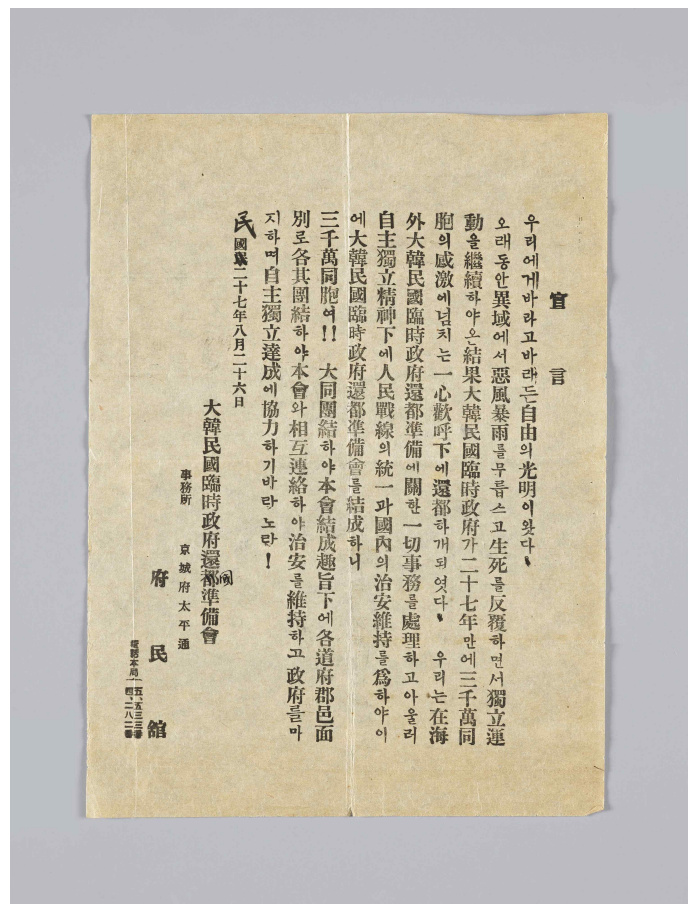 宣言
우리에게바라고바래든自由의光明이왓다、
오래동안異域에서惡風暴雨를무릅스고生死를反覆하면서獨立運
動을繼續하야온結果大韓民國臨時政府가二十七年만에三千萬同
胞의感激에넘치는一心歡呼下에還都하개되엿다、 우리는在海
外大韓民國臨時政府還都準備에關한一切事務를處理하고아울러
自主獨立精神下에人民戰線의統一과國內의治安維持를爲하야이
에大韓民國臨時政府還都準備會를結成하니
三千萬同胞여!! 大同團結하야本會結成趣旨下에各道府郡邑面
別로各其團結하야本會와相互連絡하야治安를維持하고政府를마
지하며自主獨立達成에協力하기바라노라!
民國二十七年八月二十六日
大韓民國臨時政府還都準備會
事務所 京城府太平通
府民舘
電話本局